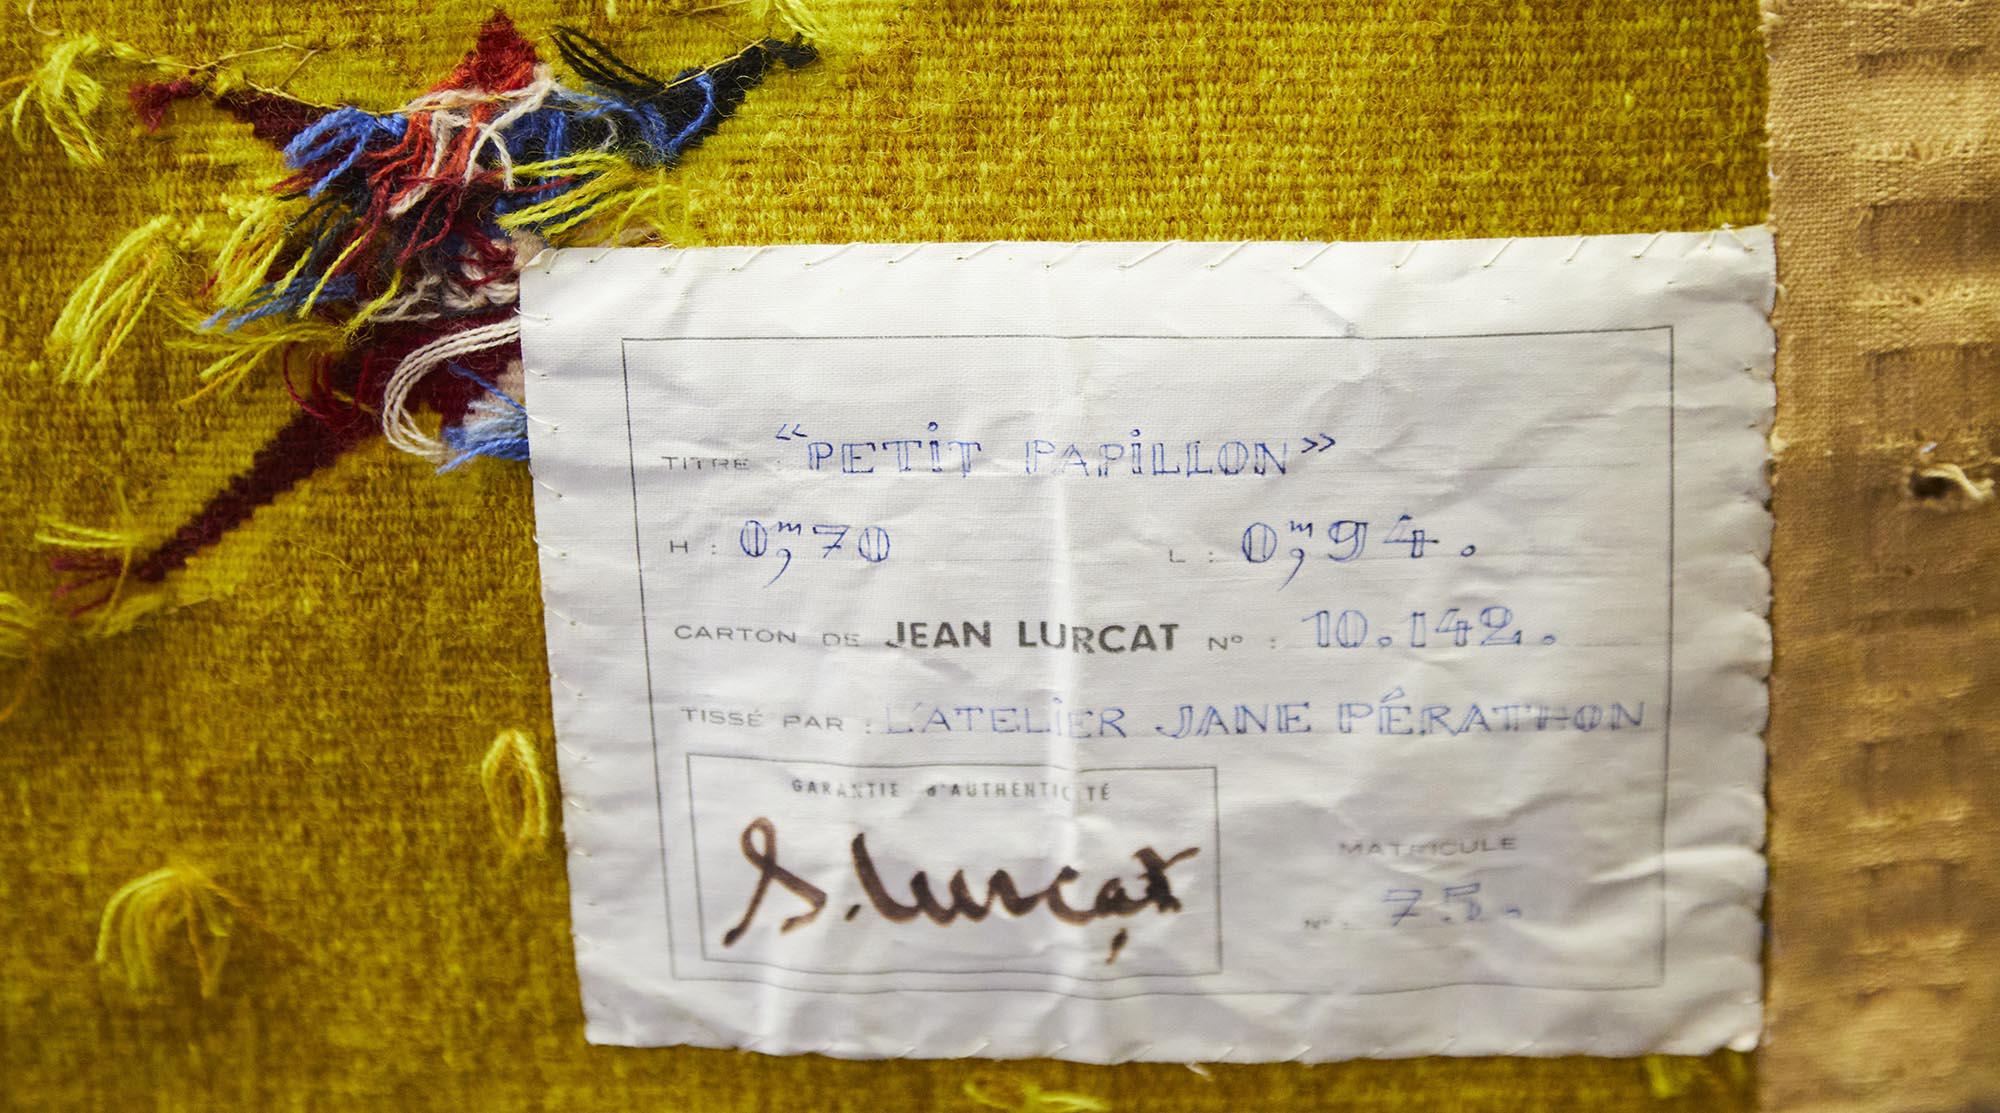 TITRE : "PETIT PAPILLON"
H : 0,m70 L : 0,m94.
CARTON DE JEAN LURCAT N° : 10.142.
TISSÉ PAR : L'ATELIER JANE PÉRATHON
GARANTIE d'AUTHENTICITÉ
J. Lurçat
MATRICULE
N° : 75.